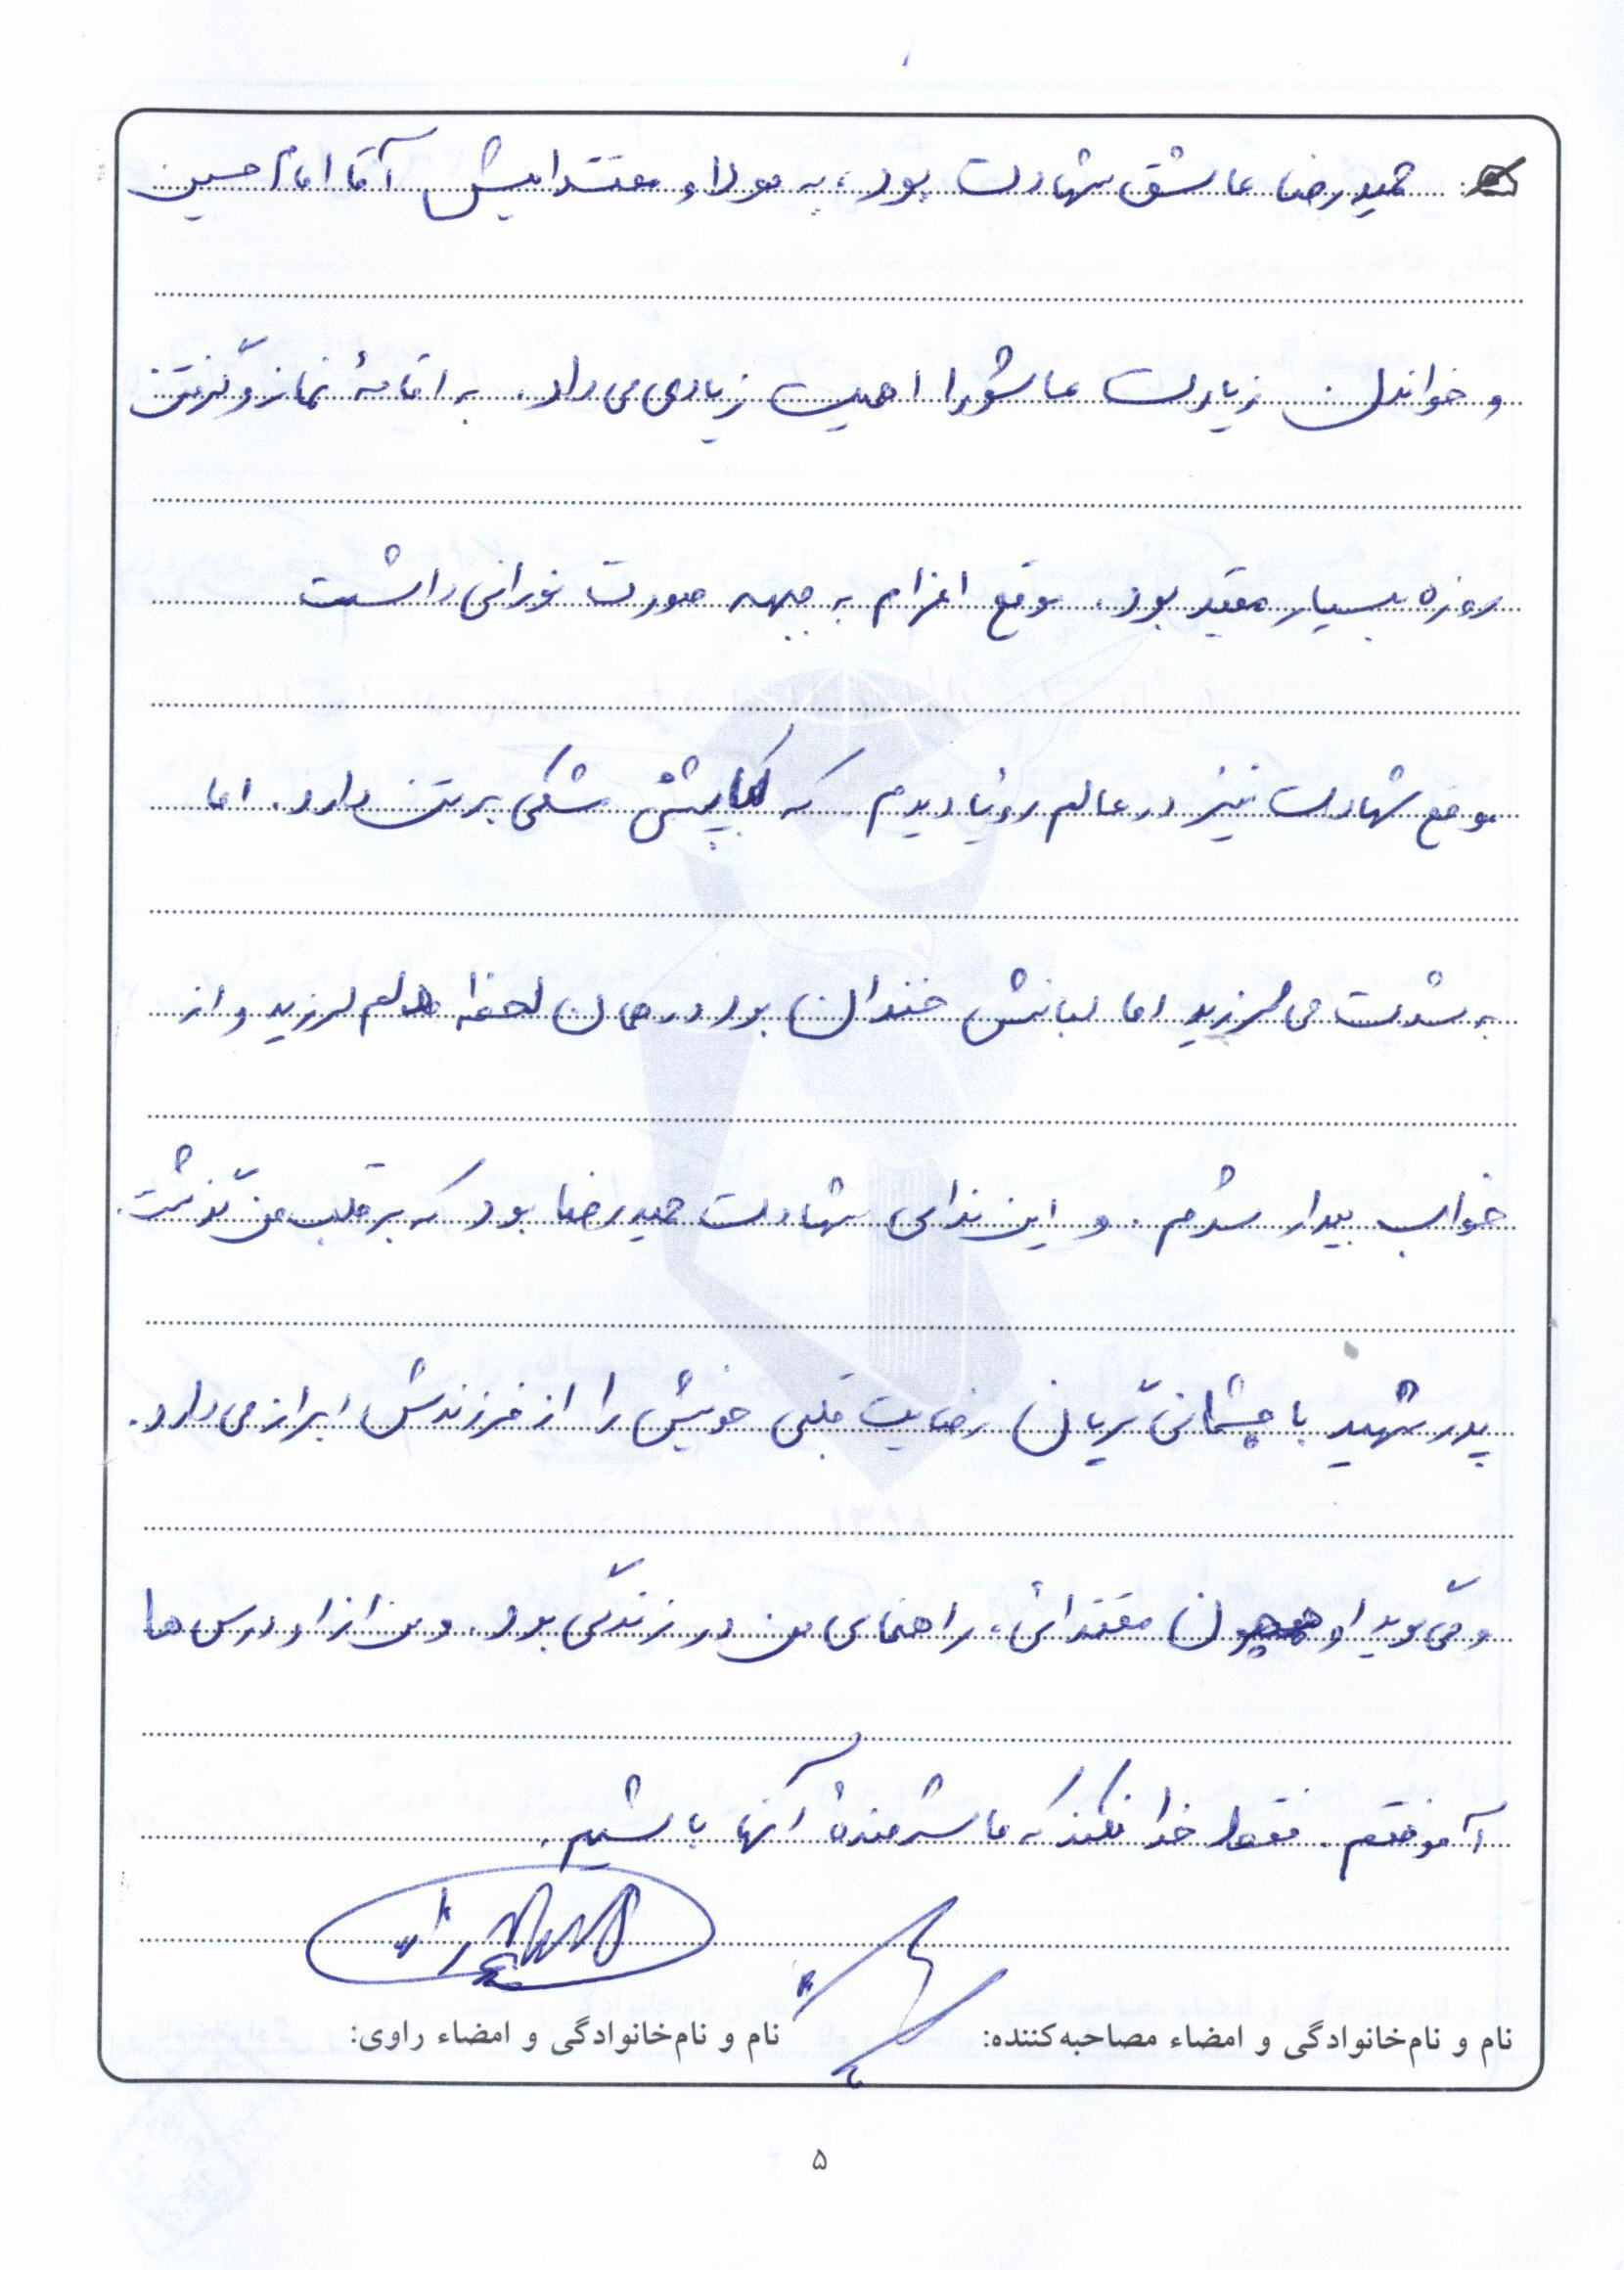 حمیدرضا عاشق شهادت بود، به مولا و مقتدایش آقا امام حسین
و خواندن زیارت عاشورا اهمیت زیادی می داد. به اقامهٔ نماز و گرفتن
روزه بسیار مقید بود. موقع اعزام به جبهه صورت نورانی داشت
موقع شهادت نیز در عالم رؤیا دیدم که کاپیشنی مشکی بر تن دارد. اما
به شدت می لرزید اما لبانش خندان بود در همان لحظه دلم لرزید و از
خواب بیدار شدم. و این ندای شهادت حمیدرضا بود که بر قلب من گذشت.
پدر شهید با چشمانی گریان رضایت قلبی خویش را از فرزندش ابراز می دارد.
و می گوید او همچون مقتدائی، راهنمای من در زندگی بود. و من از او درس ها
آموختم. فقط خدا نکند که ما شرمندهٔ آنها باشیم.
نام و نام‌خانوادگی و امضاء مصاحبه‌کننده:
نام و نام‌خانوادگی و امضاء راوی:
۵